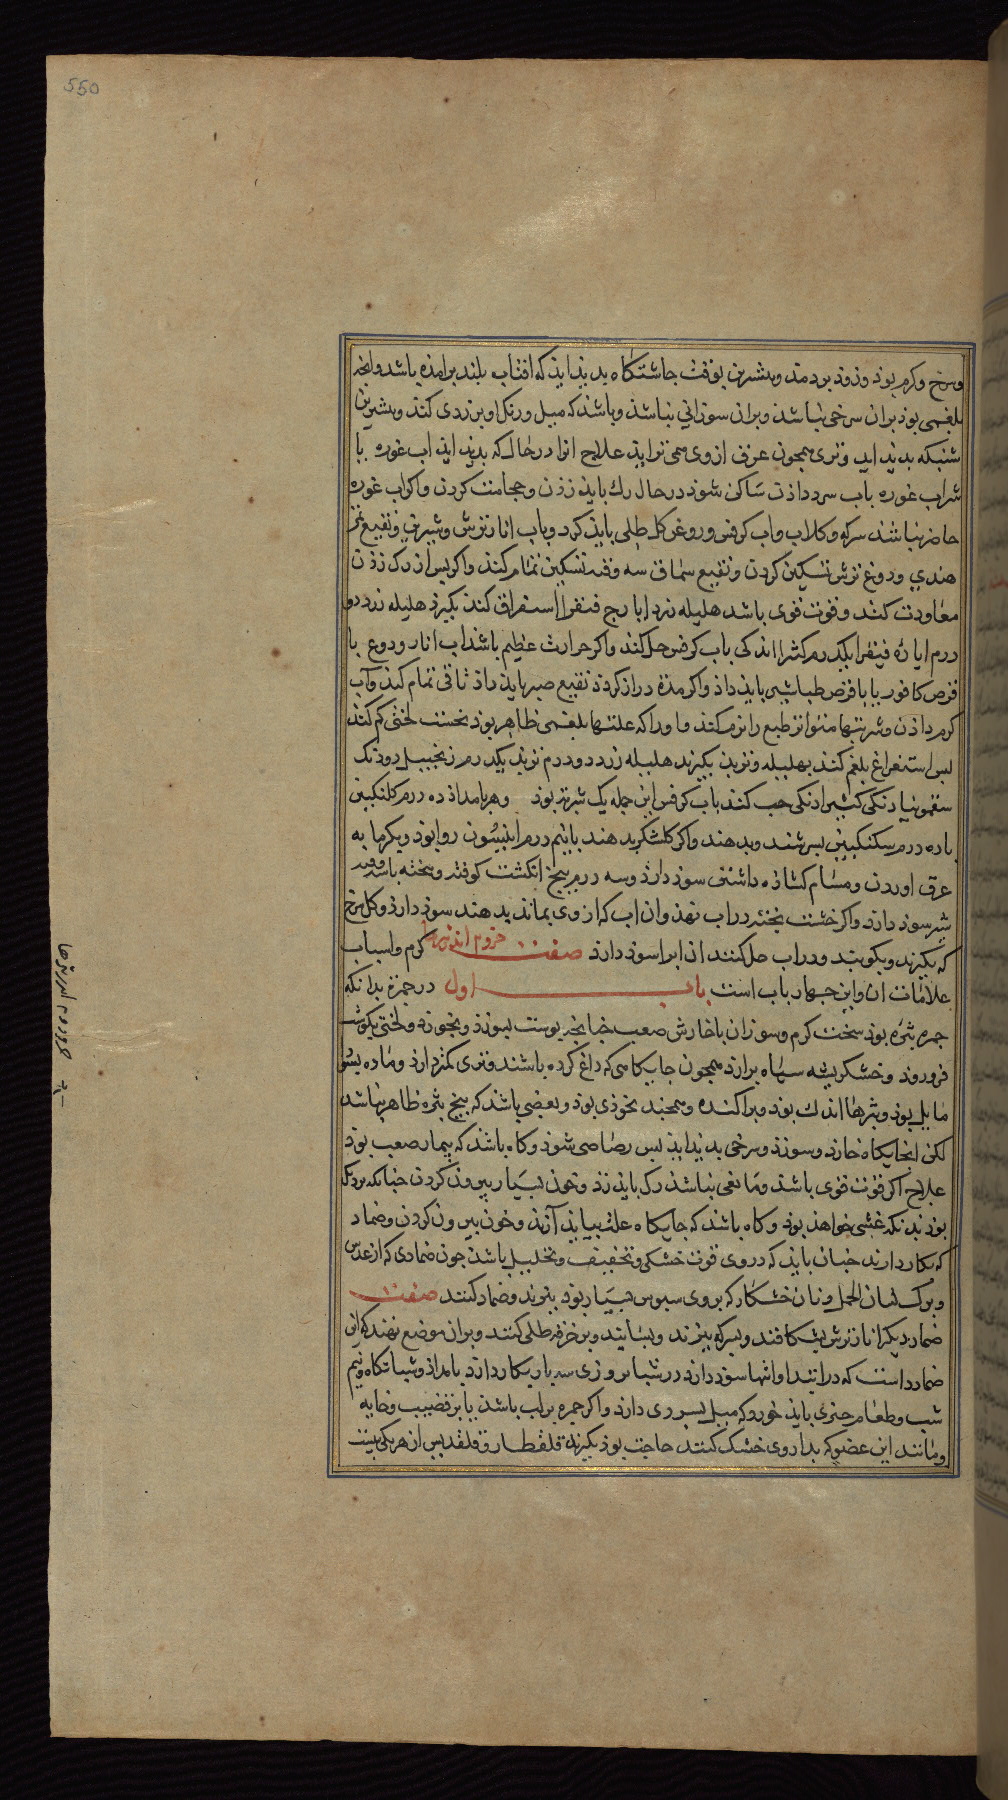 550
وسرخ و کرم بوذ و زوذ بردمد وبیشرین بوقت جاشتکاه بدیذ ایذ که افتاب بلند برامذه باشد وانجه
بلغمی بود بران سرخی نباشذ وبران سوزانی نباشذ وباشذ که میل ورنکل او بزردی کند وبیشرین
شبنکه بدیذ ایذ وتری همجون عرق ازوی همی ترایذ علاج انرا درحال که بدیذ ایذ اب غوره با
شراب غوره باب سرد داذن ساکن شوذ درحال رك بایذ زذن وحجامت کردن واکراب غوره
حاضر نباشذ سرکه وکلاب واب کرفس وروغن کل طلی بایذ کرد وباب انار ترش وشیرین ونقیع تمر
هندی ودوغ ترش تسکین کردن ونقیع سماق سه وقت تسکین تمام کند واکر پس از رک زذن
معاودت کند وقوت قوی باشد هلیله زرد ایارج فیقرا استفراق کند بکیرذ هلیله زرد دو
درم ایاره فیقرا یکدرم کثیرا اندکی باب کرفس حل کند واکر حرارت عظیم باشذ اب انار ودوغ با
قرص کافور یا با قرص طباشیر بایذ داذ واکر مدة دراز کردذ نقیع صبر بایذ داذ تا قی تمام کند وآب
کرم داذن وشربتها متواتر طبع را نرم کند واورا که علتها بلغمی ظاهر بوذ نخست لختی کم کند
پس استفراغ بلغم کند بهلیله وتربد بکیرند هلیله زرد دو درم تربد یکدرم زنجبیل دودنك
سقمونیا دنکی کثیرا دنکی حب کنند باب کرفس این جمله یک شربتی بوذ وهر بامداذ ده درم کلنکبین
باده درم سکنکبین بسرشند وبدهند واکر کلشکر بدهند بانیم درم انیسون روا بوذ وبکرمابه
عرق اوردن ومسام کشاذه داشتن سوذ دارذ وسه درم بیخ انکشت کوفته وبیخته باشد
شیر سوذ دارذ واکر خشت بخته در اب نهذ وان اب که ازوی بماند بدهند سوذ دارذ وکل سرخ
که بکیرند وبکوبند ودر اب حل کنند ان ابرا سوذ دارذ صفت جزوم اندر کرم واسباب
علامات ان واین جهار باب است باب اول در جمره بدانکه
جمره بثره بوذ سخت کرم وسوزان باخارش صعب جنانجه پوست بسوزذ وبخوره ولختی بکوشت
فرو روذ وخشکریشه سیاه برارذ همجون جایکامی که داغ کرده باشند وتری کمتر دارذ وماده بسوی
مایل بوذ وبثرها اندك بوذ وپراکنده وهمجند نخوذی بوذ وبعضی باشذ که بیخ بثره ظاهر نباشذ
لکن انجایکاه خارذ وسوزذ وسرخی بدیذ ایذ بس رصاصی شوذ وکاه باشذ که بیمار صعب بوذ
علاج اکر قوت قوی باشذ ومانعی نباشذ رک بایذ زذ وخون بسیار بیرون کردن جنانکه نزدیک
بوذ بذنکه غشی خواهذ بوذ وکاه باشذ که جایکاه علت ببایذ آزذن وخون بیرون کردن وضماد
که بکار دارند جنان بایذ که در وی قوت خشکی وتخفیف وتحلیل باشذ جون ضمادی که از عدس
وبرك لسان الحمل ونان خشکار که بروی سبوس بسیار بوذ ببزند وضماد کنند صفت
ضماد دیکر انار ترش بشکافند وبسرکه ببزند وبسایند وبر خرقه طلی کنند وبران موضع نهند که این
ضماد است که در ابتدا وانتها سوذ دارذ در شبانروزی سه بار بکار دارذ بامداذ وشبانکاه ونیم
شب وطعام جنری بایذ خورد که میل بسردی دارذ واکر جمره بر لب باشذ یا بر قضیب وخایه
ومانند این عضو که بداروی خشک کننده حاجت بوذ بکیرند قلقطار وقلقدیس از هر یکی بیست